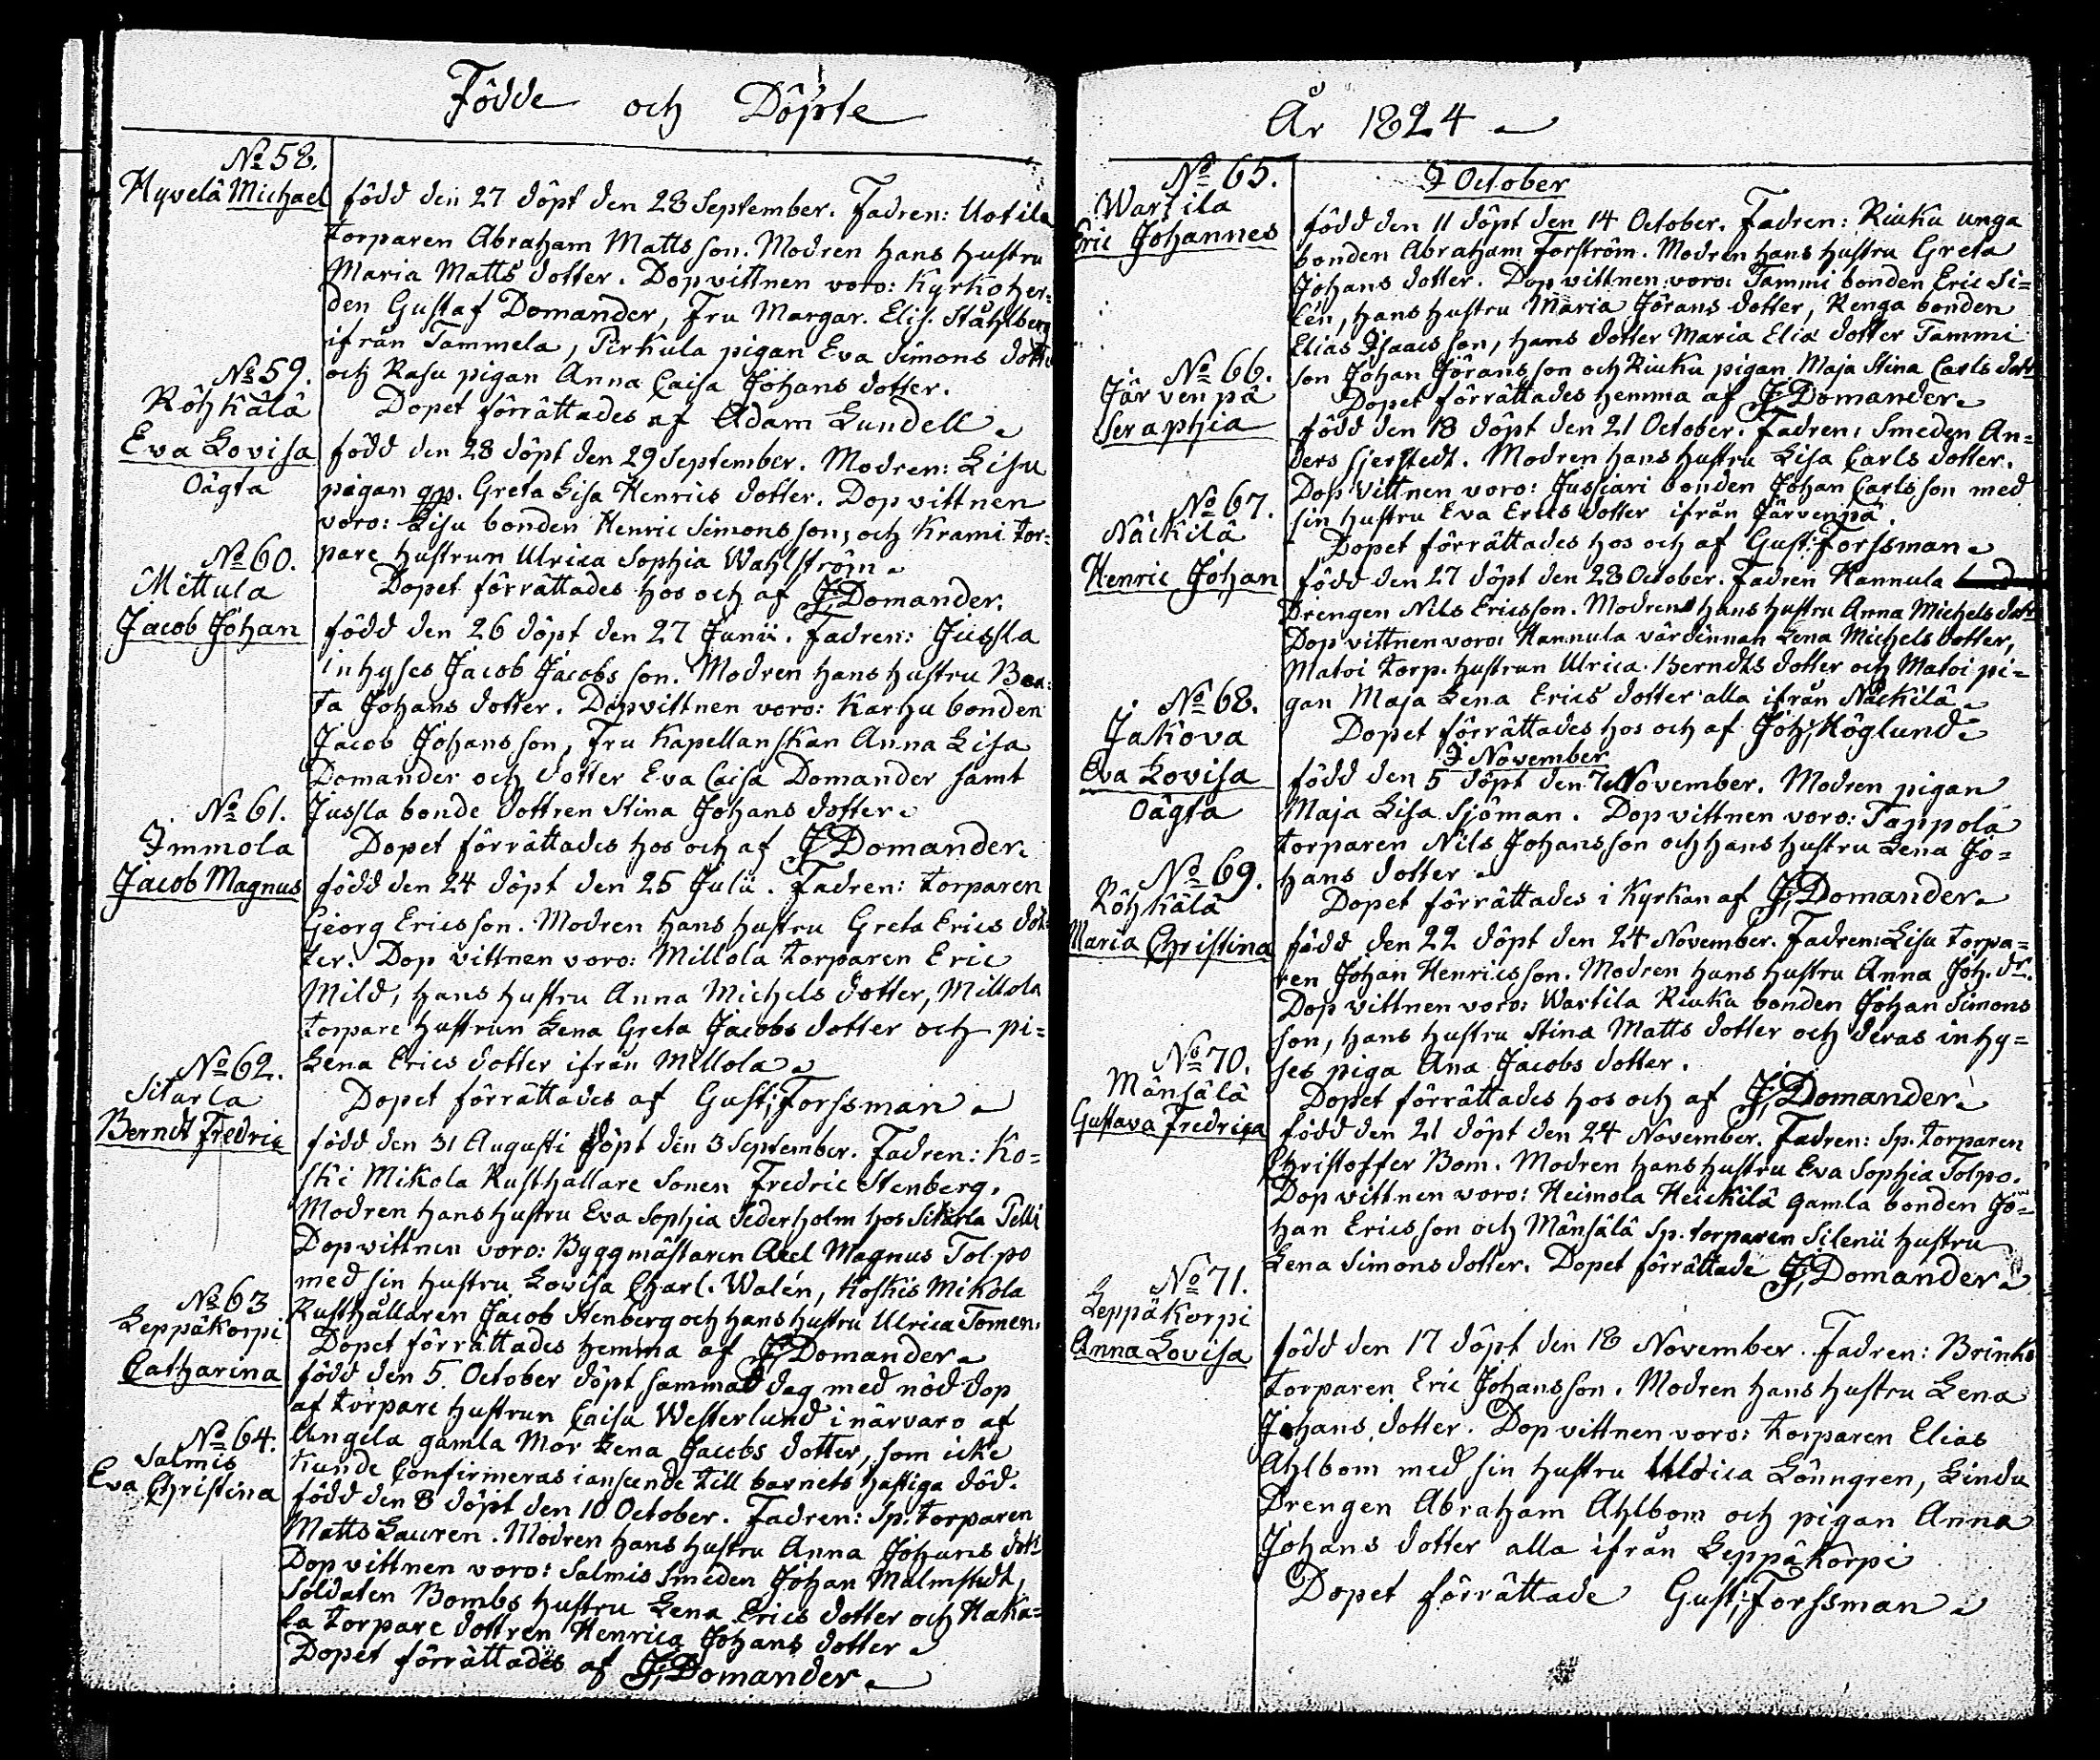 Födde och Döpte
No 58.
Hyvelä Michael
född den 27 döpt den 28 September. Fadren: Uotila
torparen Abraham Matts son. Modren hans hustru
Maria Matts dotter. Dopvittnen voro: Kyrkoher=
den Gustaf Domander, Fru Margar. Elis. Ståhlberg
ifrån Tammela, Pirkula pigan Eva Simons dotter
och Rasu pigan Anna Caisa Johans dotter.
Dopet förrättades af Adam Lundell
No 59.
Röhkälä
Eva Lovisa
Oägta
född den 28 döpt den 29 September. Modren: Lisu
pigan qp. Greta Lisa Henrics dotter. Dop vittnen
voro: Lisu bonden Henric Simons son, och Krami tor=
pare hustrun Ulrica Sophia Wahlström
Dopet förrättades hos och af J. Domander.
No 60.
Mettula
Jacob Johan
född den 26 döpt den 27 Junii. Fadren: Jussla
inhyses Jacob Jacobs son. Modren hans hustru Bea=
ta Johans dotter. Dopvittnen voro: Karhu bonden
Jacob Johans son, Fru Kapellanskan Anna Lisa
Domander och dotter Eva Caisa Domander samt
Jussla bonde dottren Stina Johans dotter
Dopet förrättades hos och af J. Domander.
No 61.
Immola
Jacob Magnus
född den 24 döpt den 25 Julii. Fadren: torparen
Georg Erics son. Modren hans hustru Greta Erics dot=
ter. Dop vittnen voro: Millola torparen Eric
Mild, hans hustru Anna Michels dotter, Millola
torpare hustrun Lena Greta Jacobs dotter och pi=
Lena Erics dotter ifrån Millola
Dopet förrättades af Gust: Forssman
No 62.
Sitarla
Berndt Fredric
född den 31 Augusti döpt den 3 September. Fadren: Ko=
ski Mikola Rusthållare Sonen Fredric Stenberg.
Modren hans hustru Eva Sophia Sederholm hos Sitarla Pelli
Dopvittnen voro: Byggmästaren Axel Magnus Tolpo
med sin hustru Lovisa Charl. Walén, Koskis Mikola
Rusthållaren Jacob Stenberg och hans hustru Ulrica Tomen.
Dopet förrättades hemma af J. Domander
No 63
Leppäkorpi
Catharina
född den 5 October döpt samma dag med nöd dop
af torpare hustrun Caisa Westerlund i närvaro af
Angela gamla Mor Lena Jacobs dotter, som icke
kunde Confirmeras i anseende till barnets hastiga död.
No 64.
Salmis
Eva Christina
född den 8 döpt den 10 October. Fadren: Sp. torparen
Matts Lauren. Modren hans hustru Anna Johans dott
Dop vittnen voro: Salmis Smeden Johan Malmstedt,
Soldaten Bombs hustru Lena Erics dotter och Haka=
la torpare dottren Henrica Johans dotter
Dopet förrättades af J. Domander
År 1824
I October
No 65.
Wartila
Eric Johannes
född den 11 döpt den 14 October. Fadren: Riuku unga
bonden Abraham Forström. Modren hans hustru Greta
Johans dotter. Dop vittnen voro: Tammi bonden Eric Si=
lén, hans hustru Maria Jörans dotter, Renga bonden
Elias Isaacs son, hans dotter Maria Elia dotter Tammi
son Johan Jörans son och Riuku pigan Maja Stina Carls dott
Dopet förrättades hemma af J. Domander
No 66.
Järvenpä
Seraphia
född den 18 döpt den 21 October. Fadren: Smeden An=
ders Sjerstedt. Modren hans hustru Lisa Carls dotter.
Dop Vittnen voro: Jussiari bonden Johan Carls son med
sin hustru Eva Erics dotter ifrån Järvenpä.
Dopet förrättades hos och af Gust: Forssman
No 67.
Näckilä
Henric Johan
född den 27 döpt den 28 October. Fadren Hannula
Drengen Nils Ericsson. Modren hans hustru Anna Michels dott
Dop vittnen voro: Hannula värdinnan Lena Michels dotter,
Matoi torp. hustrun Ulrica Berndts dotter och Matoi pi=
gan Maja Lena Erics dotter alla ifrån Näckilä
Dopet förrättades hos och af Joh: Höglund
I November
No 68.
Jakova
Eva Lovisa
Oägta
född den 5 döpt den 7 November. Modren pigan
Maja Lisa Sjöman. Dop vittnen voro: Tappola
torparen Nils Johans son och hans hustru Lena Jo=
hans dotter
Dopet förrättades i Kyrkan af J. Domander
No 69.
Röhkälä
Maria Christina
född den 22 döpt den 24 November. Fadren: Lisu torpa=
ren Johan Henrics son. Modren hans hustru Anna Joh. dr.
Dop vittnen voro: Wartila Riuku bonden Johan Simons
son, hans hustru Stina Matts dotter och deras inhy=
ses piga Ana Jacobs dotter.
Dopet förrättades hos och af J. Domander
No 70.
Mänsälä
Gustava Fredrica
född den 21 döpt den 24 November. Fadren: Sp. torparen
Christoffer Bom. Modren hans hustru Eva Sophia Tolpo.
Dop vittnen voro: Heimola Heickilä gamla bonden Jo=
han Erics son och Mänsälä Sp. torparen Silenii hustru
Lena Simons dotter. Dopet förrättade J. Domander
No 71.
Leppäkorpi
Anna Lovisa
född den 17 döpt den 18 November. Fadren: Brinks
torparen Eric Johans son. Modren hans hustru Lena
Johans dotter. Dop vittnen voro: torparen Elias
Ahlbom med sin hustru Ulrica Lönngren, Lindu
Drengen Abraham Ahlbom och pigan Anna
Johans dotter alla ifrån Leppäkorpi
Dopet förrättade Gust: Forssman